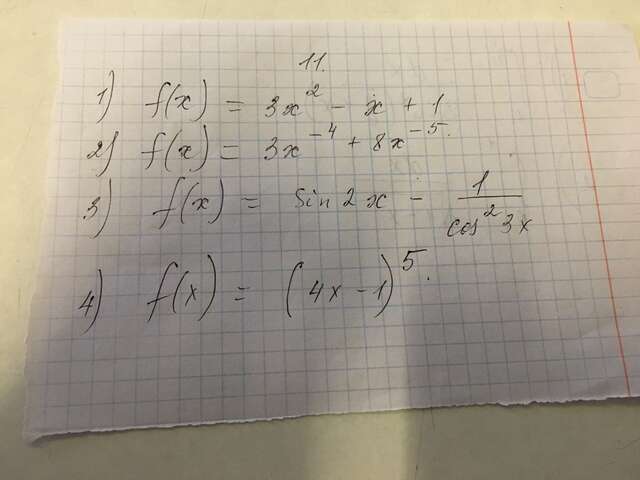 11.
1) f(x) = 3x² - x + 1
2) f(x) = 3x⁻⁴ + 8x⁻⁵.
3) f(x) = sin 2x - 1/cos² 3x
4) f(x) = (4x - 1)⁵.